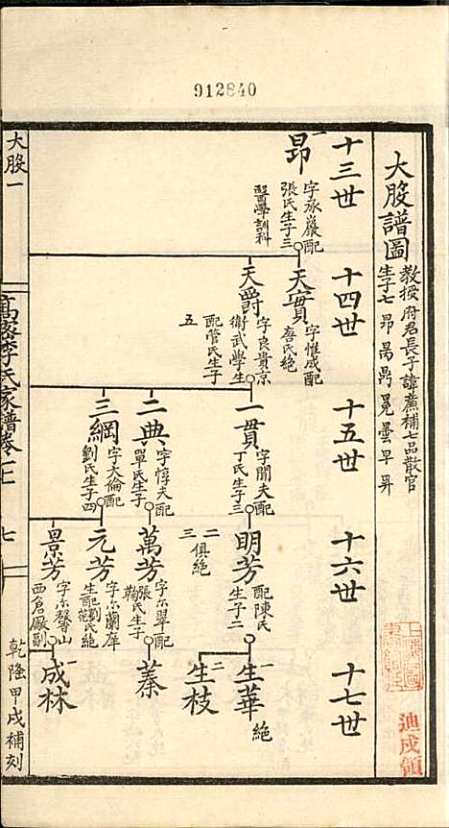 912840
大股譜圖
教授府君長子諱薦補七品散官
生子七 昂 冕 曇 早 昇
十三世
十四世
十五世
十六世
十七世
昂
一
字承巖配
張氏生子三
醫學訓科
天實
字惟成配
唐氏絕
天爵
字良貴京
衛武學生
配管氏生子
五
一貫
字聞夫配
丁氏生子三
二典
字惇夫配
單氏生子
三綱
字大倫配
劉氏生子四
明芳
配陳氏
生子二
二
三
俱絕
萬芳
字小翠配
張氏生子
元芳
字小蘭庠
生配劉氏絕
景芳
字小馨山
西倉廠副
生華
一
絕
生枝
二
蓁
成林
一
大股一
高密李氏家譜卷之七
七
乾隆甲戌補刻
迪戌領